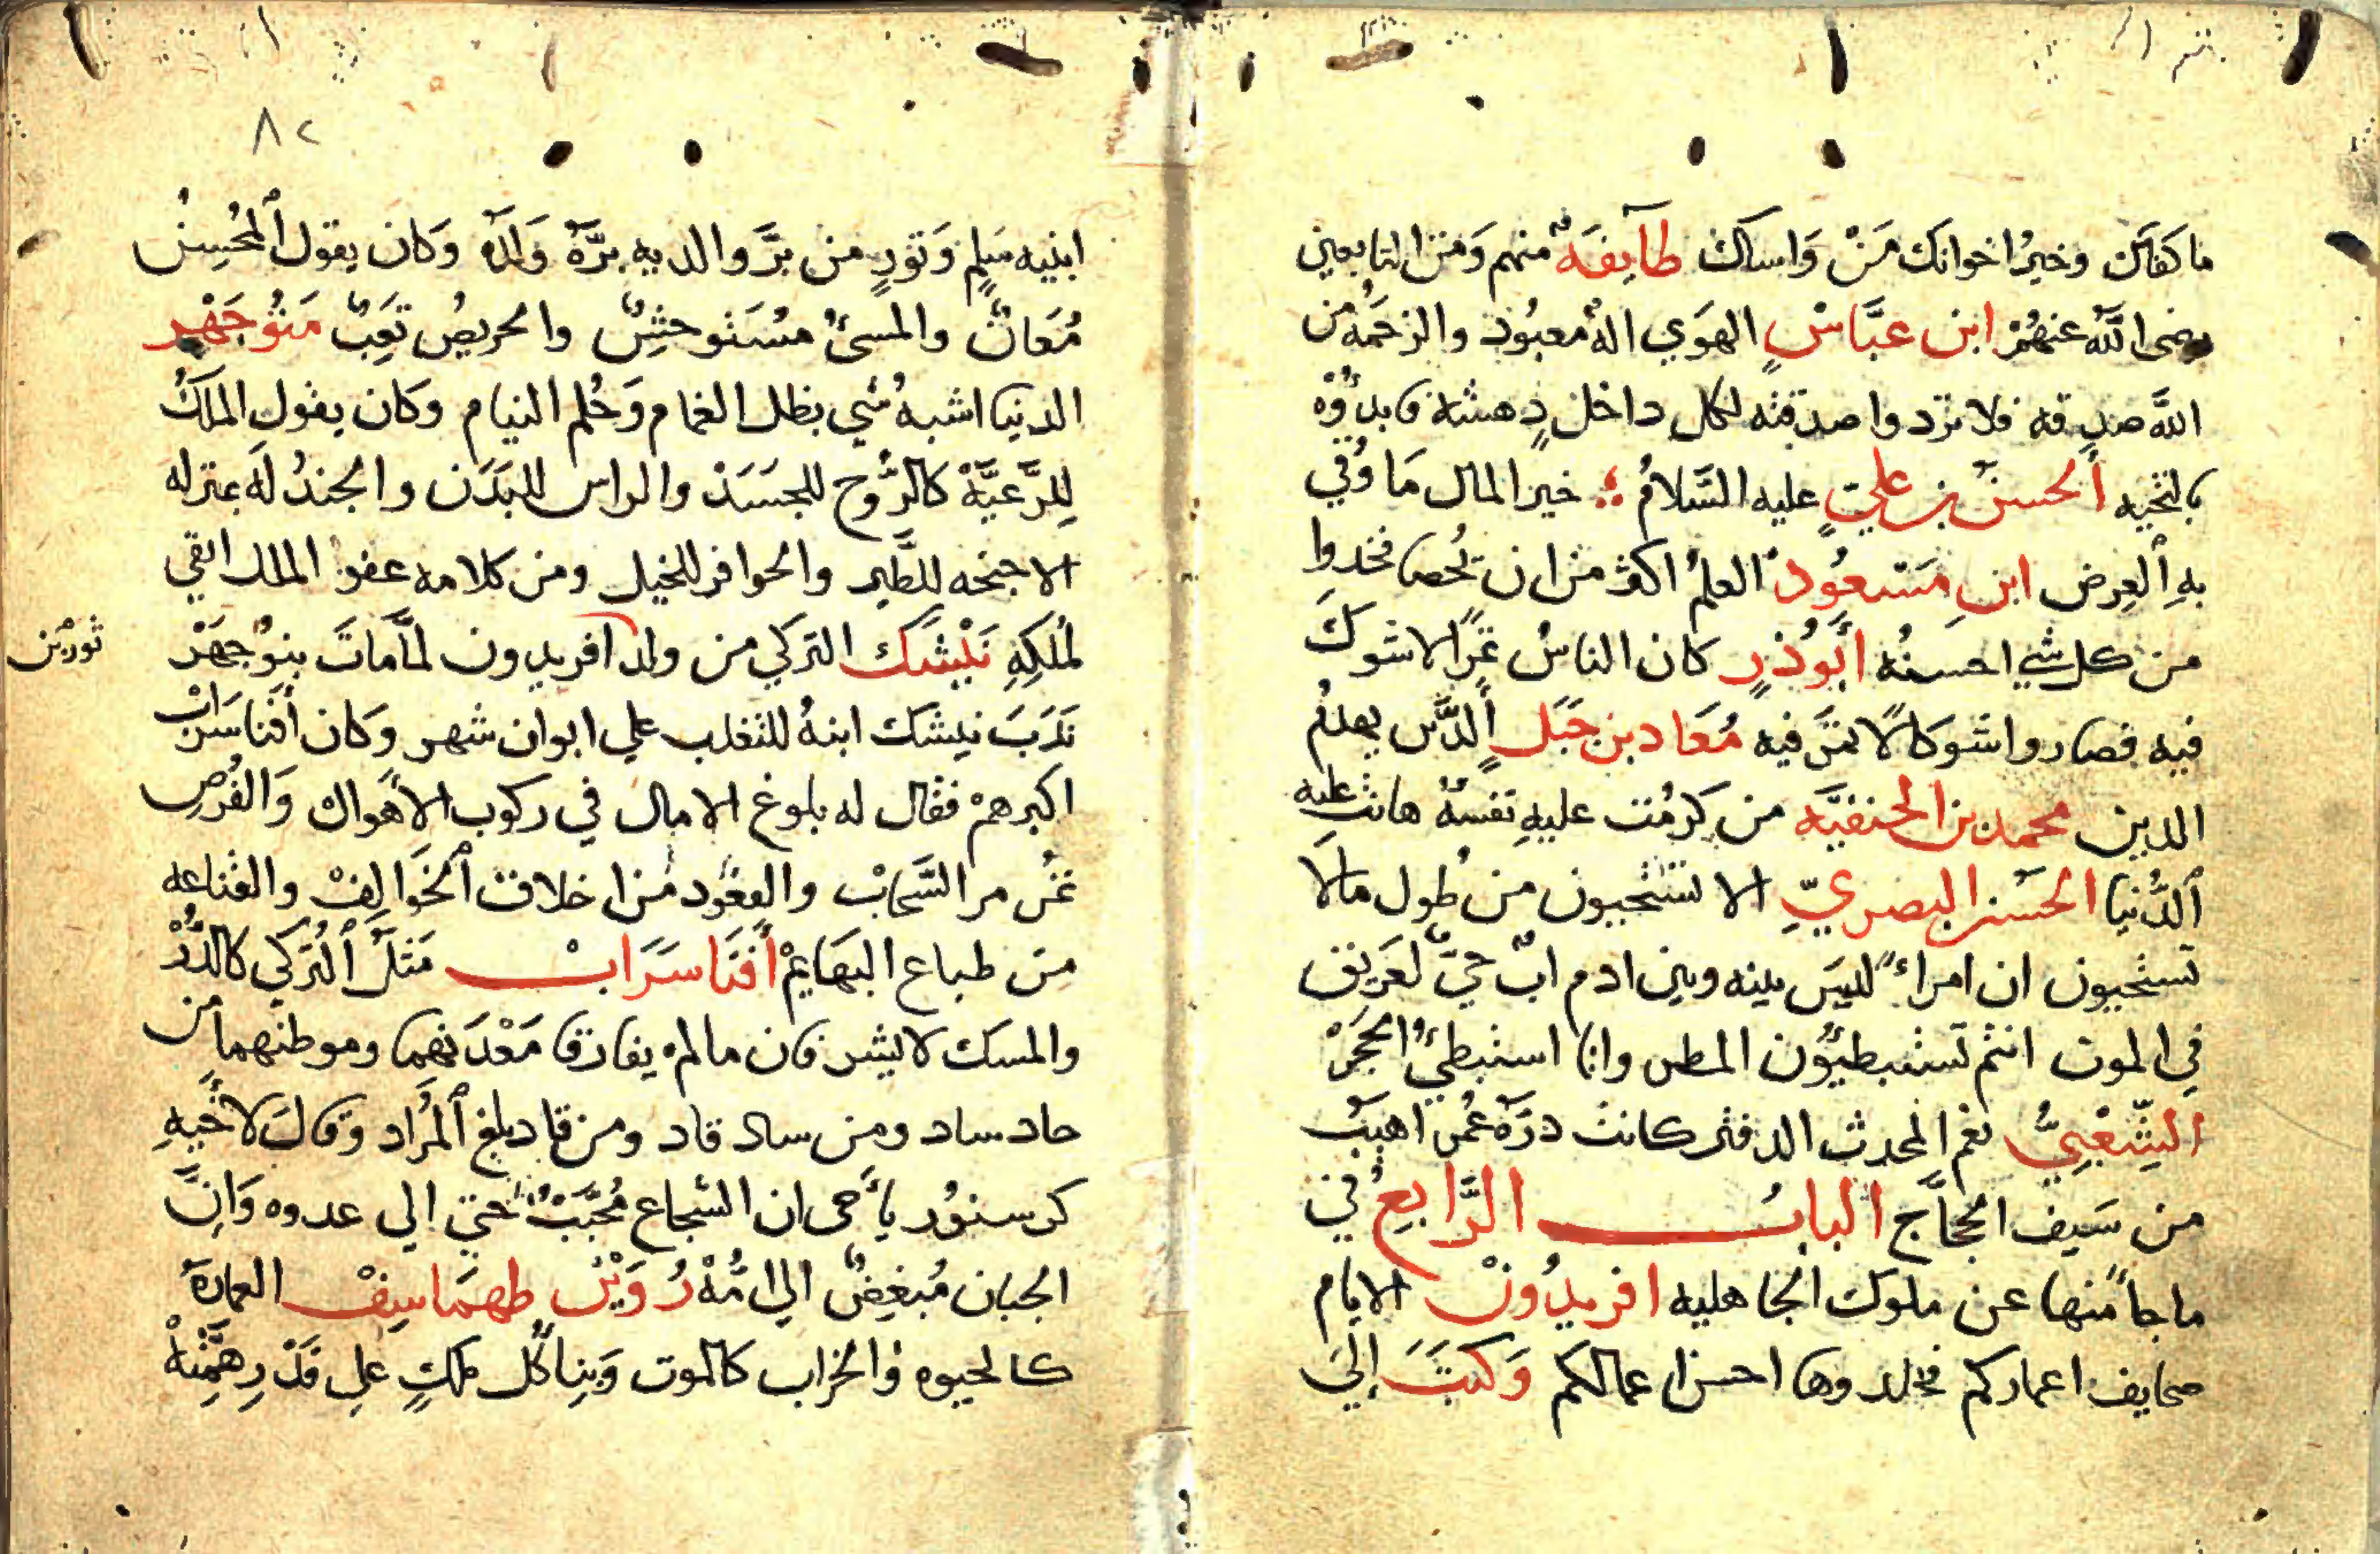 ما كفاك وخير اخوانك من واساك طايفة منهم ومن التابعين
رضى الله عنهم ابن عباس الهوي اله معبود والرحمه من
الله صدقه فلا تردوا صدقته لكل داخل دهشه فابدؤه
بالتحيه الحسن بن علي عليه السلام خير المال ما وقي
به العرض ابن مسعود العلم اكثر من ان يحصا فخدوا
من كل شي احسنه أبو ذر كان الناس ثمرا لا شوك
فيه فصاروا شوكا لا ثمر فيه معاد بن جبل الدين يهدم
الدين محمد بن الحنفيه من كرمت عليه نفسه هانت عليه
الدنيا الحسن البصري الا تستحيون من طول مالا
تستحيون ان امراء ليس بينه وبين ادم اب حي لعريق
في الموت انتم تستبطيون المطر وانا استبطي الحجر
الشعبي نعم المحدث الدفتر كانت درة عمر اهيب
من سيف الحجاج الباب الرابع في
ما جا منها عن ملوك الجاهليه افريدون الايام
صحايف اعماركم فخلدوها احسن اعمالكم وكتب إلى
٨٢
ابنيه سلم وتور من بر والديه بره ولده وكان يقول المحسن
معان والمسئ مستوحش والحريص تعب منوجهر
الدنيا اشبه شي بظل الغمام وحلم النيام وكان يقول الملك
للرعية كالروح للجسد والراس للبدن والجند له بمنزله
الاجنحه للطير والحوافر للخيل ومن كلامه عفو الملك ابقي
لملكه نليشك التركي من ولد افريدون لما مات بنوجهر
ثور بن
ندب نيشك ابنه للتغلب علي ايوان شهر وكان أفناسراب
اكبرهم فقال له بلوغ الامال في ركوب الاهوال والفرص
تمر مر السحاب والقعود من اخلاق الخوالف والقناعه
من طباع البهايم أفناسراب مثل التركي كالدر
والمسك لا يشرفان ما لم يفارقا معدنهما وموطنهما من
حاد ساد ومن ساد قاد ومن قاد بلغ المراد وقال لاخيه
كرسنور يا أخى ان الشجاع محبب حتي الي عدوه وان
الجبان مبغض الي امه روين طهماسيف العمارة
كالحيوه والخراب كالموت وبنا كل ملك علي قدر همته